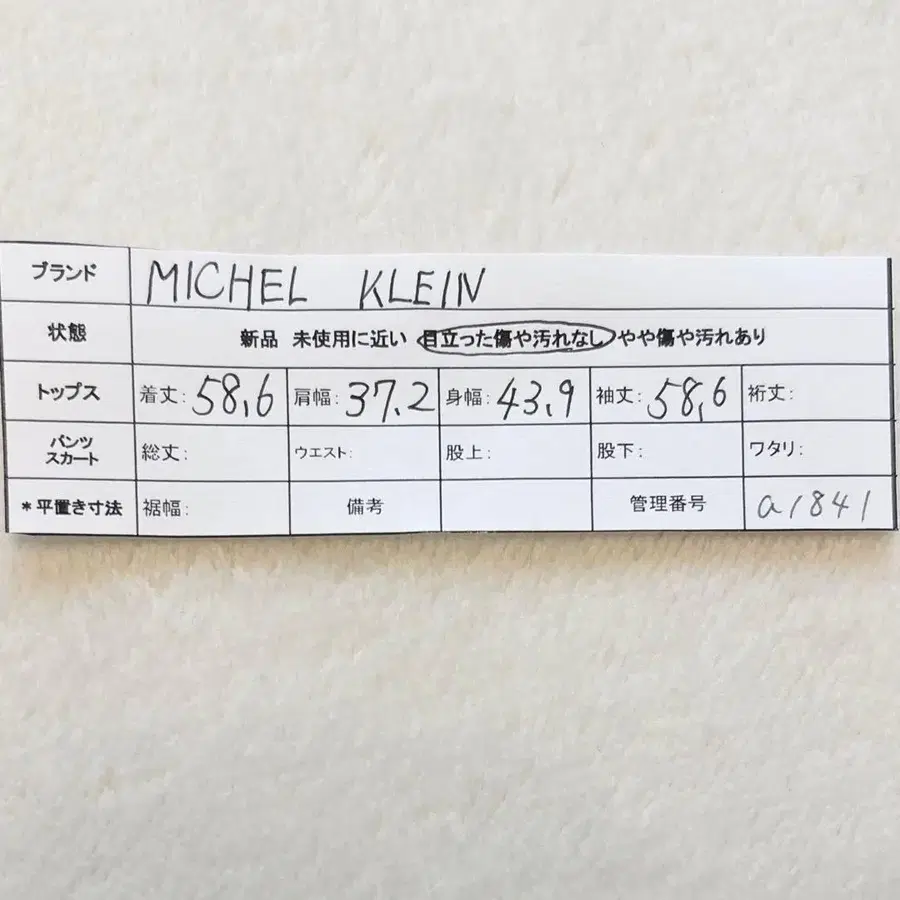 ブランド MICHEL KLEIN
状態 新品 未使用に近い 目立った傷や汚れなし やや傷や汚れあり
トップス 着丈: 58,6 肩幅: 37.2 身幅: 43.9 袖丈: 58,6 裄丈:
パンツ
スカート 総丈: ウエスト: 股上: 股下: ワタリ:
*平置き寸法 裾幅: 備考 管理番号 a1841